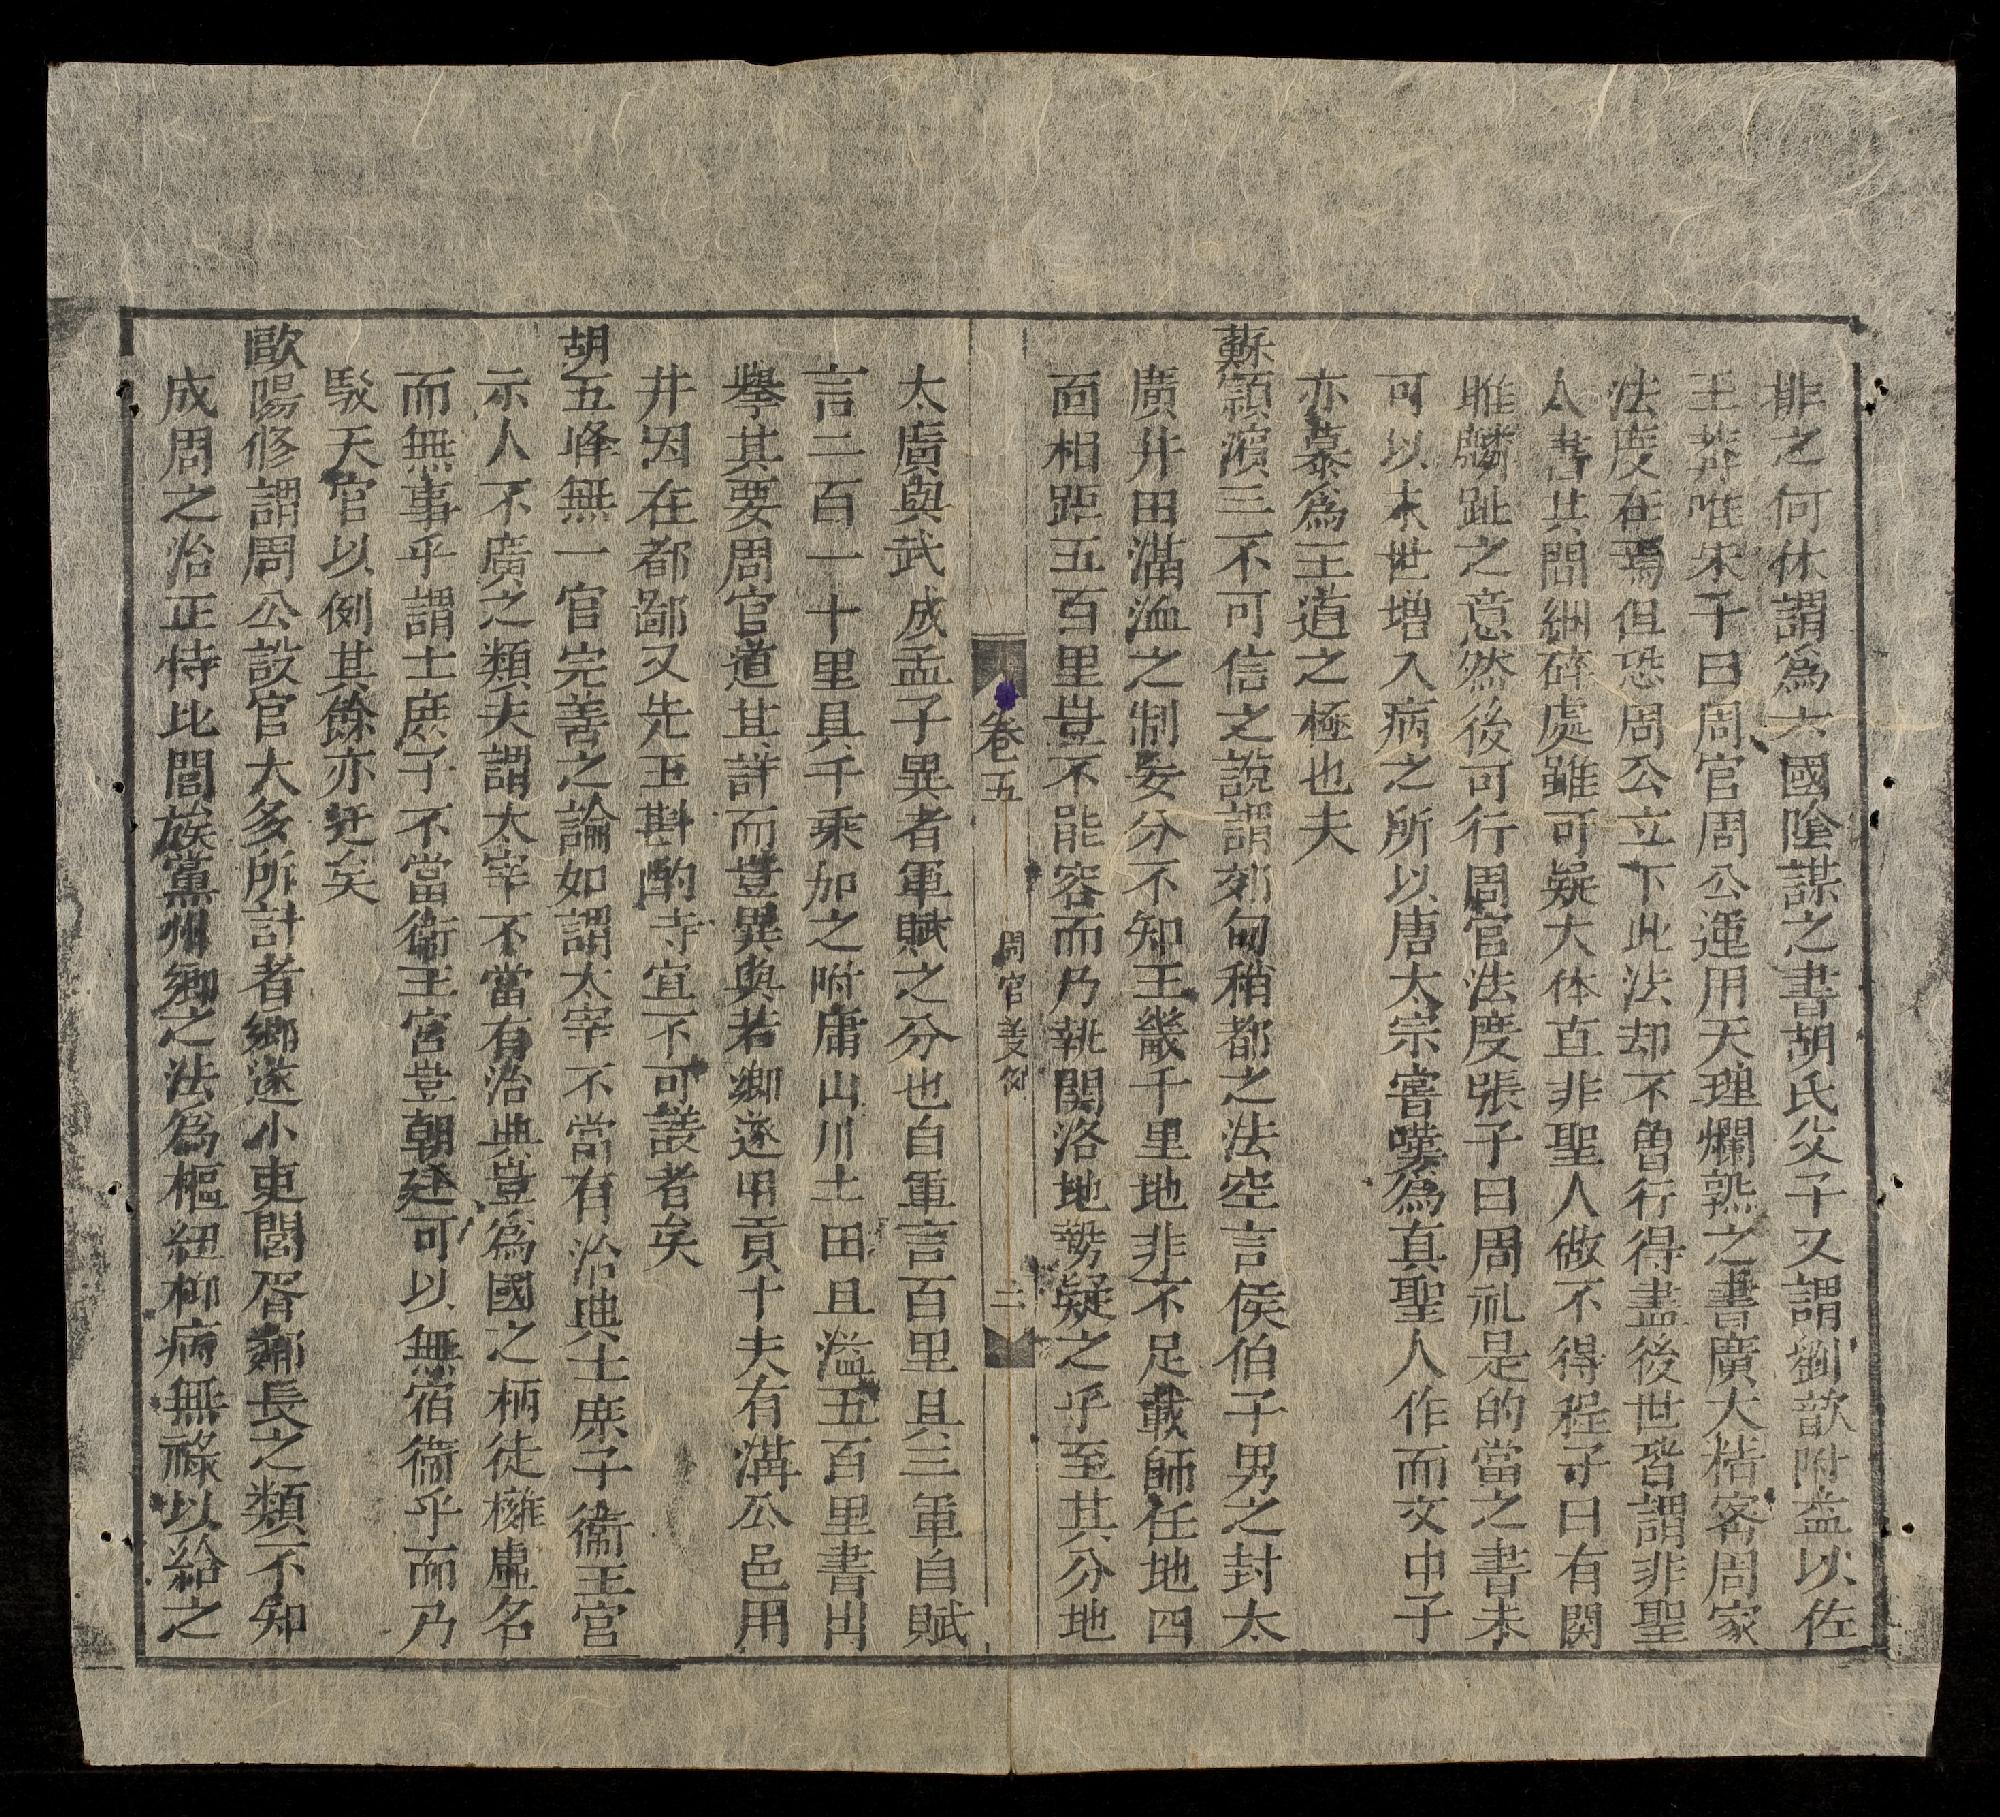 排之何休謂為六國陰謀之書胡氏父子又謂劉歆附益以佐
王莽唯朱子曰周官周公運用天理爛熟之書廣大精密周家
法度在焉但恐周公立下此法却不曽行得盡後世皆謂非聖
人書其間細碎處雖可疑大体直非聖人做不得程子曰有関
雎麟趾之意然後可行周官法度張子曰周礼是的當之書未
可以末世增入病之所以唐太宗嘗嘆為真聖人作而文中子
亦慕為王道之極也夫
蘇頴濱三不可信之說謂郊甸稍都之法空言侯伯子男之封太
廣井田溝洫之制妄分不知王畿千里地非不足載師任地四
面相距五百里豈不能容而乃執関洛地勢疑之乎至其分地
卷五 周官義例 二
太廣與武成孟子異者軍賦之分也自軍言百里具三軍自賦
言二百一十里具千乘加之附庸山川土田且溢五百里書出
舉其要周官道其詳而豈異與若鄉遂用貢十夫有溝公邑用
井因在都鄙又先王斟酌寺宜不可議者矣
胡五峰無一官完善之論如謂太宰不當有治典士庶子衛王宮
示人不廣之類夫謂太宰不當有治典豈為國之柄徒擁虛名
而無事乎謂士庶子不當衛王宮豈朝廷可以無宿衛乎而乃
駁天官以例其餘亦迂矣
歐陽修謂周公設官太多所計者鄉遂小吏閭胥鄰長之類不知
成周之治正恃比閭族黨州鄉之法為樞紐柳病無祿以給之